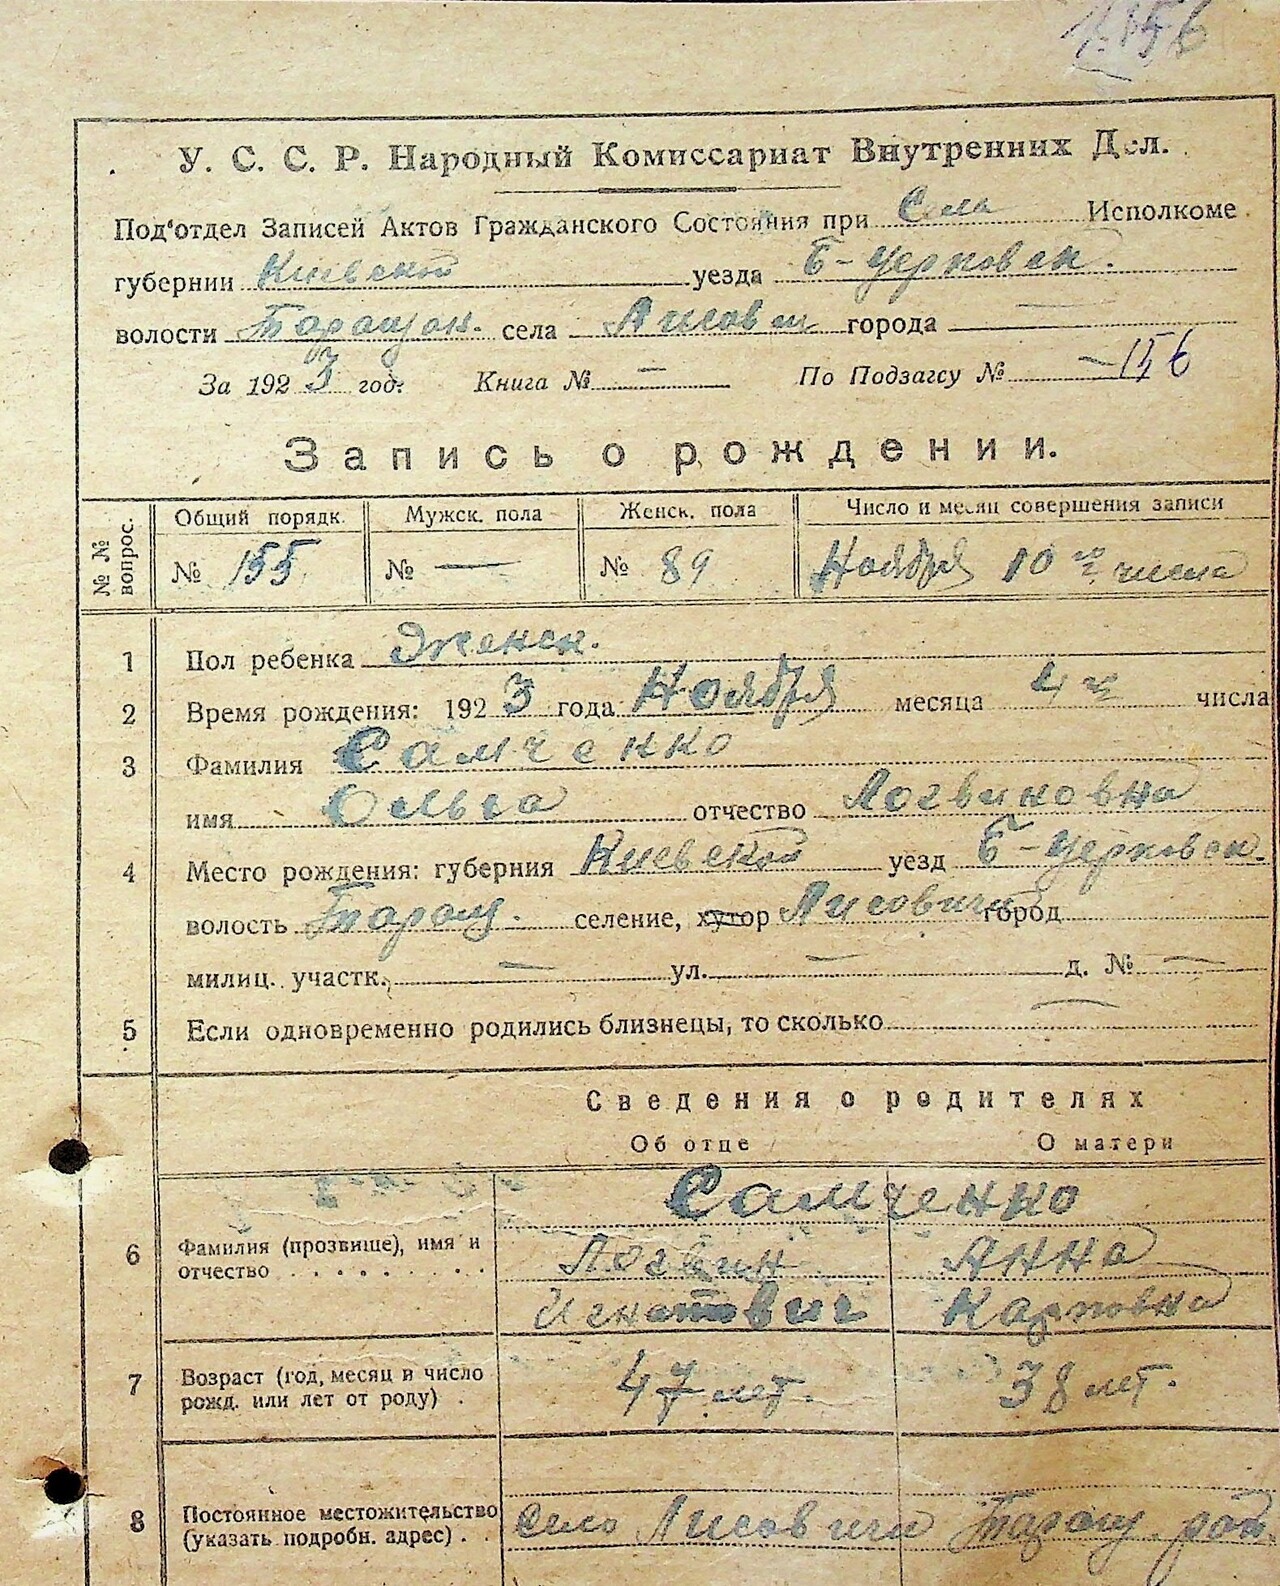 156
У. С. С. Р. Народный Комиссариат Внутренних Дел.
Под'отдел Записей Актов Гражданского Состояния при Села Исполкоме
губернии Киевской уезда Б-Церковск.
волости Таращан. села Лисович города —
За 1923 год. Книга № — По Подзагсу № —156
Запись о рождении.
№ № вопрос. Общий порядк. Мужск. пола Женск. пола Число и месяц совершения записи
№ 155 № — № 89 Ноября 10го числа
1 Пол ребенка Женск.
2 Время рождения: 1923 года Ноября месяца 4го числа
3 Фамилия Самченко
имя Ольга отчество Логвиновна
4 Место рождения: губерния Киевской уезд Б-Церковск.
волость Таращ. селение, хутор Лисовичи город
милиц. участк. — ул. — д. № —
5 Если одновременно родились близнецы, то сколько —
Сведения о родителях
Об отце О матери
Самченко
6 Фамилия (прозвище), имя и Логвин Анна
отчество . . . . . . . Игнатович Карповна
7 Возраст (год, месяц и число 47 лет. 38 лет.
рожд. или лет от роду) .
8 Постоянное местожительство село Лисовичи Таращ. рай.
(указать подробн. адрес) . .